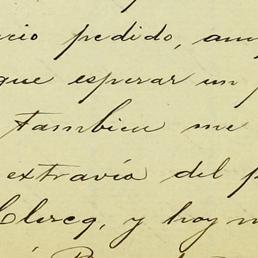 pedido,
que esperar un
tambien me
extravío del
Clercq, y hoy